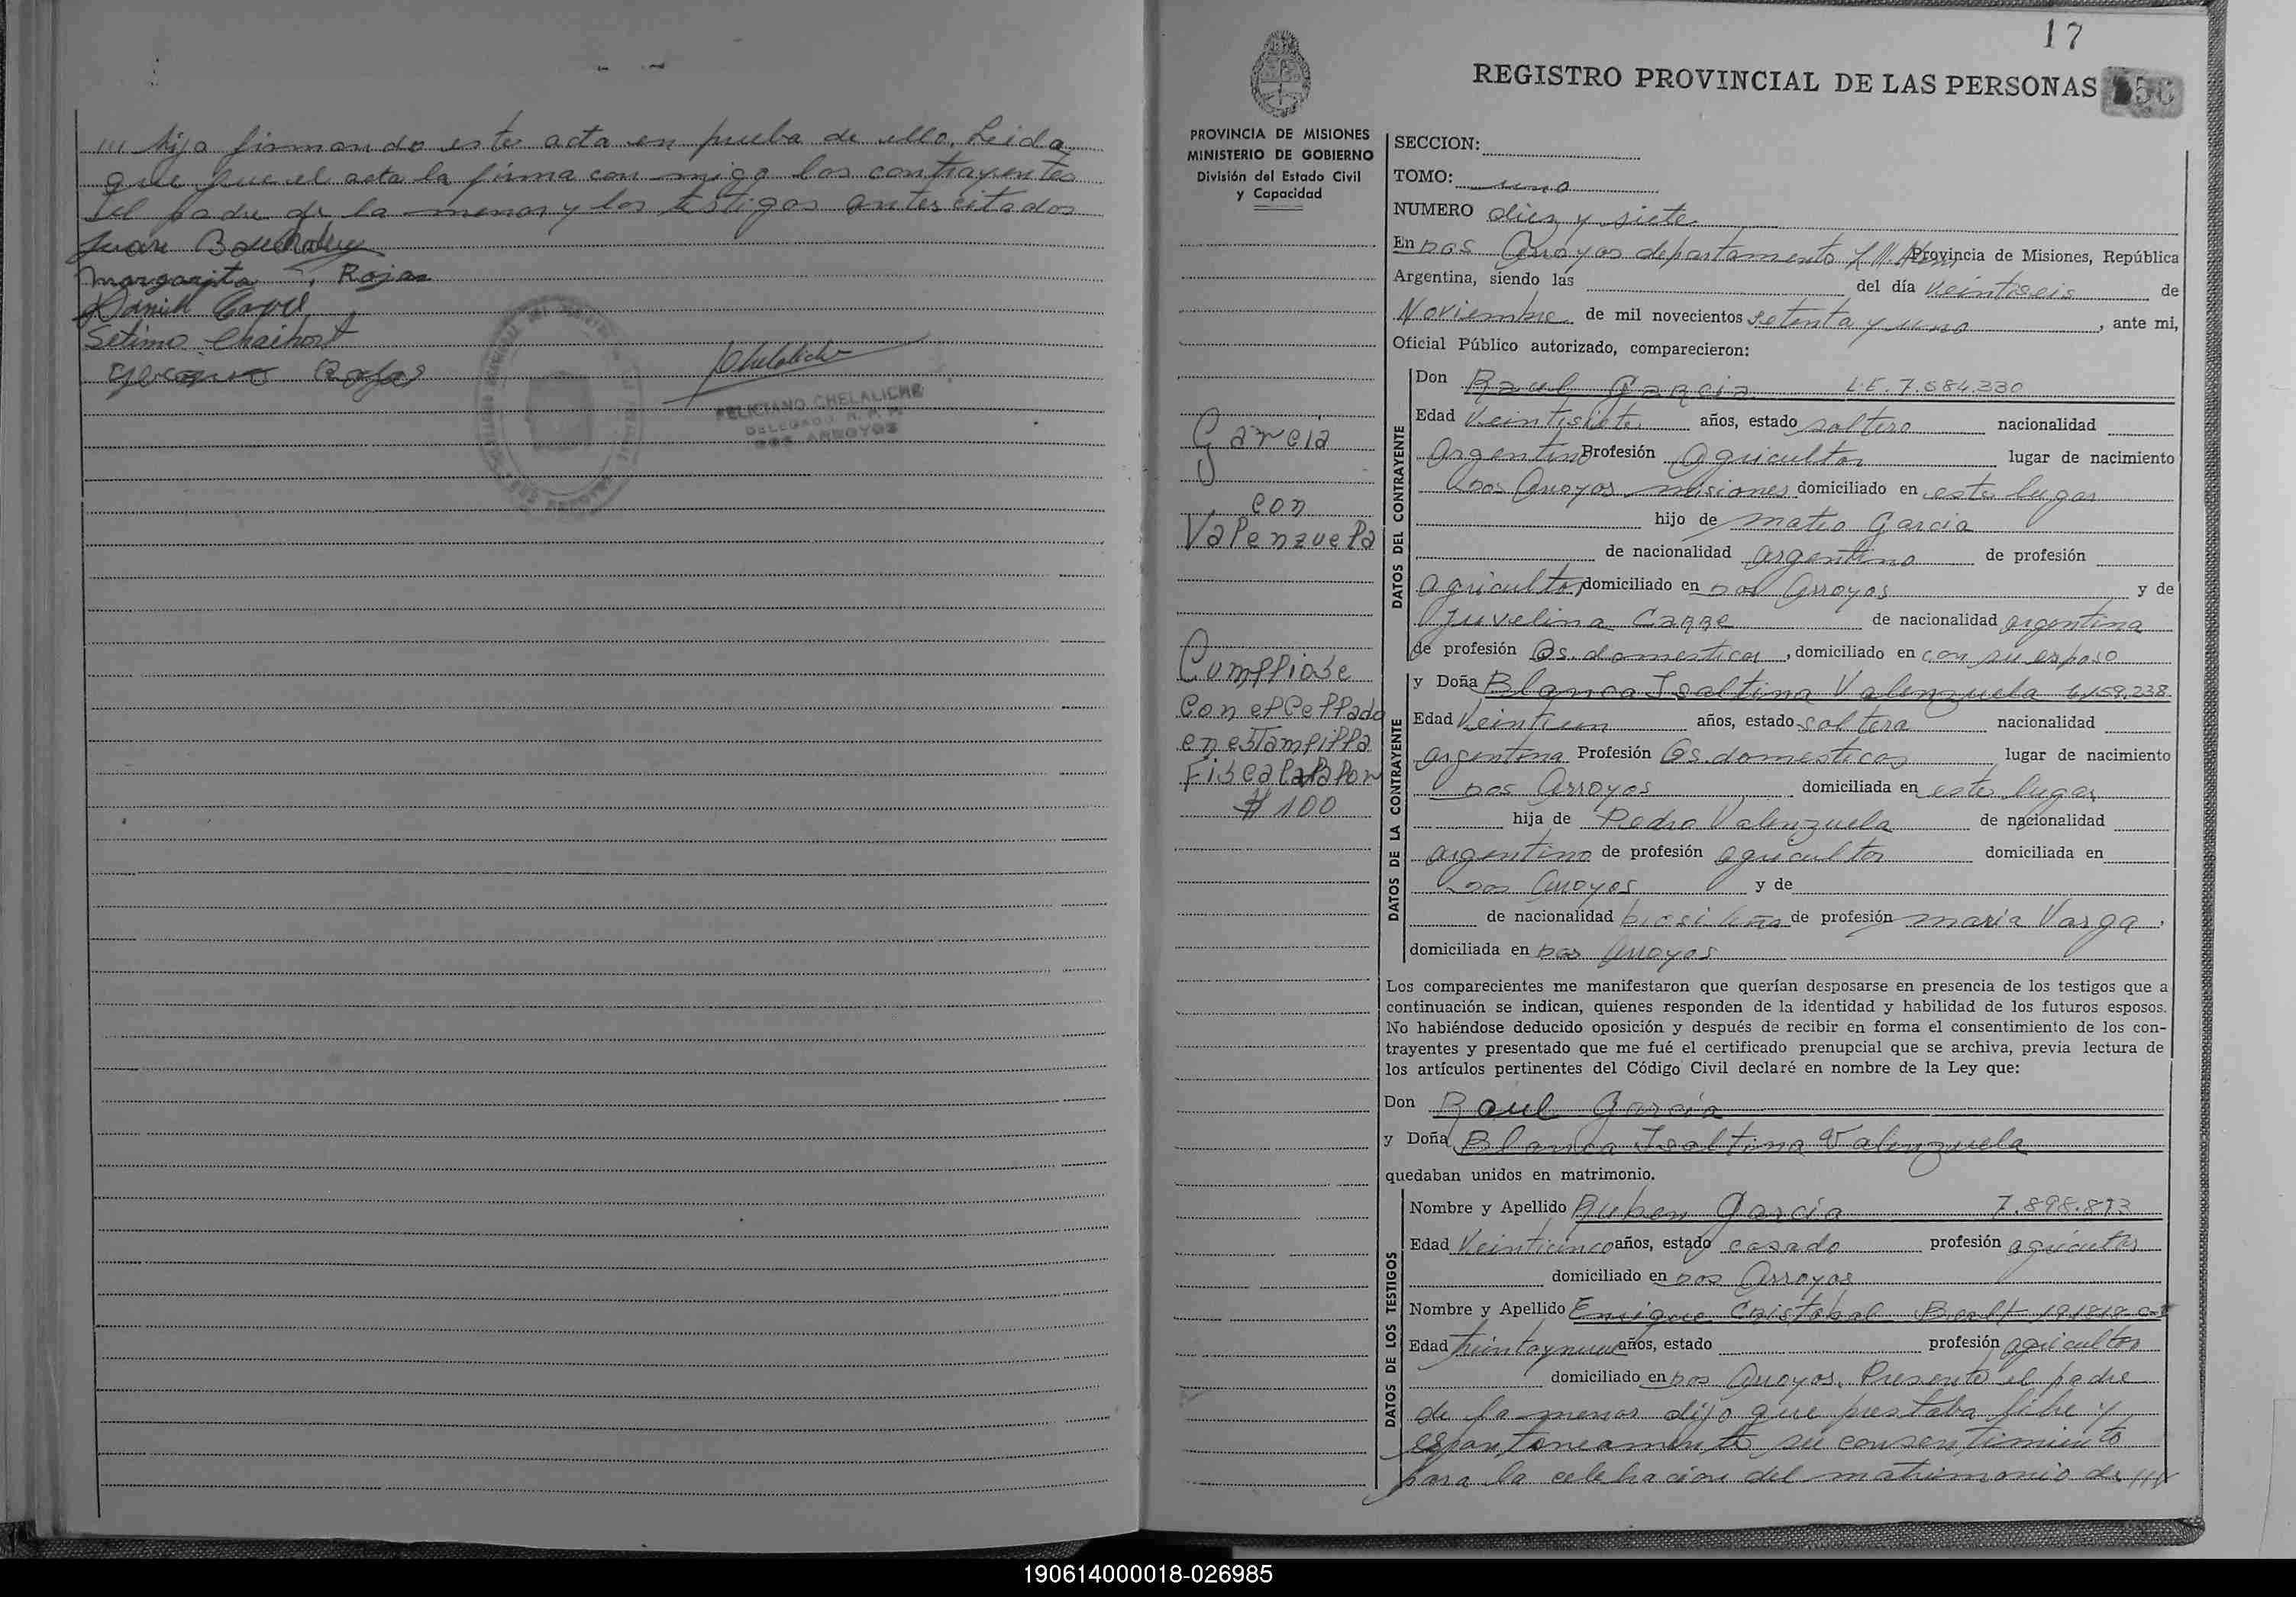 hija firmando este acta en prueba de ello. Leida
que fue el acta la firma con migo los contrayentes
el padre de la menor y los testigos antes citados
Juan
Margarita T. Rojas
Daniel
Setimo
Rojas
FELICIANO CHELALICHE
DELEGADO R. P. P.
DOS ARROYOS
17
REGISTRO PROVINCIAL DE LAS PERSONAS
PROVINCIA DE MISIONES
MINISTERIO DE GOBIERNO
División del Estado Civil
y Capacidad
García
con
Valenzuela
Cumpliose
con el Cellado
en estampilla
Fiscal valor
$ 100
SECCION:
TOMO: uno
NUMERO diez y siete
En Dos Arroyos departamento L.N. Alem Provincia de Misiones, República
Argentina, siendo las del día veintiseis de
Noviembre de mil novecientos setenta y uno, ante mi,
Oficial Público autorizado, comparecieron:
DATOS DEL CONTRAYENTE
Don Raul Garcia L.E. 7.584.330
Edad veintisiete años, estado soltero nacionalidad
argentino Profesión Agricultor lugar de nacimiento
Dos Arroyos misiones domiciliado en este lugar
hijo de Mateo Garcia
de nacionalidad argentino de profesión
agricultor domiciliado en Dos Arroyos y de
Juvelina Carre de nacionalidad argentina
de profesión Qs. domesticos, domiciliado en con su esposo
DATOS DE LA CONTRAYENTE
y Doña Blanca Isaltina Valenzuela 6.159.238
Edad Veintiun años, estado soltera nacionalidad
argentina Profesión Qs. domesticos lugar de nacimiento
Dos Arroyos domiciliada en este lugar
hija de Pedro Valenzuela de nacionalidad
argentino de profesión agricultor domiciliada en
Dos Arroyos y de
de nacionalidad brasileña de profesión maria Varga.
domiciliada en Dos Arroyos
Los comparecientes me manifestaron que querían desposarse en presencia de los testigos que a
continuación se indican, quienes responden de la identidad y habilidad de los futuros esposos.
No habiéndose deducido oposición y después de recibir en forma el consentimiento de los con-
trayentes y presentado que me fué el certificado prenupcial que se archiva, previa lectura de
los artículos pertinentes del Código Civil declaré en nombre de la Ley que:
Don Raul Garcia
y Doña Blanca Isaltina Valenzuela
quedaban unidos en matrimonio.
DATOS DE LOS TESTIGOS
Nombre y Apellido Ruben Garcia 7.898.893
Edad Veinticinco años, estado casado profesión agricultor
domiciliado en Dos Arroyos
Nombre y Apellido Enrique Cristobal
Edad treintaynueve años, estado profesión agricultor
domiciliado en Dos Arroyos. Presente el padre
de la menor dijo que prestaba libre y
espontaneamente su consentimiento
para la celebracion del matrimonio de ///
190614000018-026985